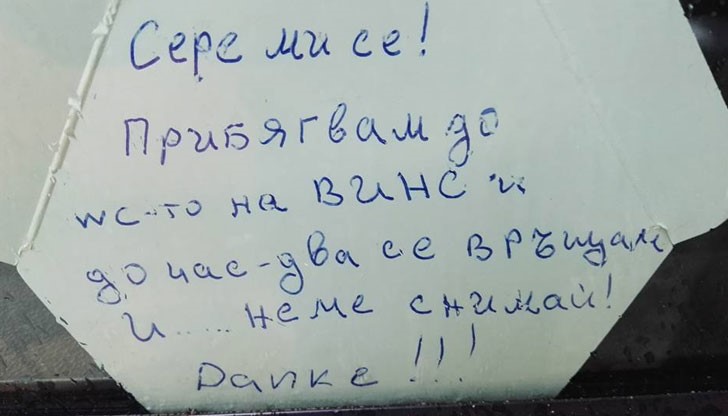 Сере ми се!
Прибягвам до
wc-то на ВИНС и
до час-два се връщам
и ..... не ме снимай!
Danke!!!